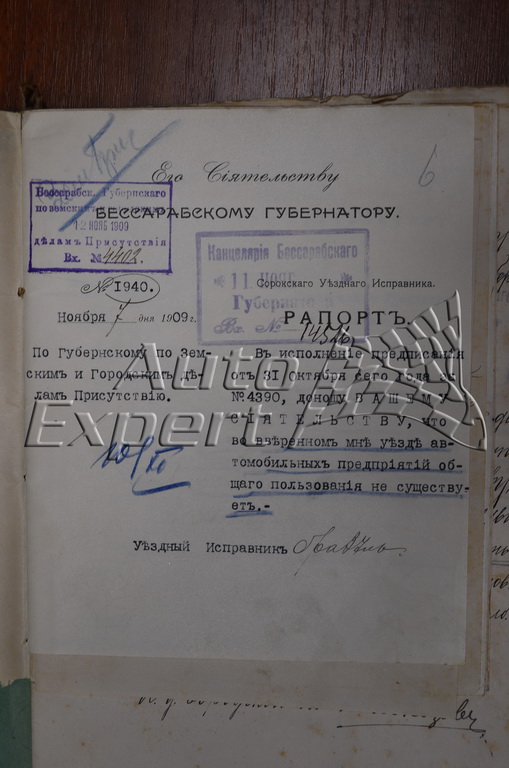 6
Его Сіятельству
БЕССАРАБСКОМУ ГУБЕРНАТОРУ.
Бессарабск. Губернскаго
по земским
12 НОЯБ 1909
дѣламъ Присутствія
Вх. № 4402.
Канцелярія Бессарабскаго
11 НОЯБ.
Губернатора
Вх. № 14526
№ 1940.
Ноября 7 дня 1909 г.
Сорокскаго Уѣзднаго Исправника.
РАПОРТЪ.
По Губернскому по Зем-
скимъ и Городскимъ Дѣ-
ламъ Присутствію.
Въ исполненіе предписанія
отъ 31 октября сего года за
№ 4390, доношу ВАШЕМУ
СІЯТЕЛЬСТВУ, что
во ввѣренномъ мнѣ уѣздѣ ав-
томобильныхъ предпріятій об-
щаго пользованія не существу-
етъ.-
Уѣздный Исправникъ
Auto
Expert